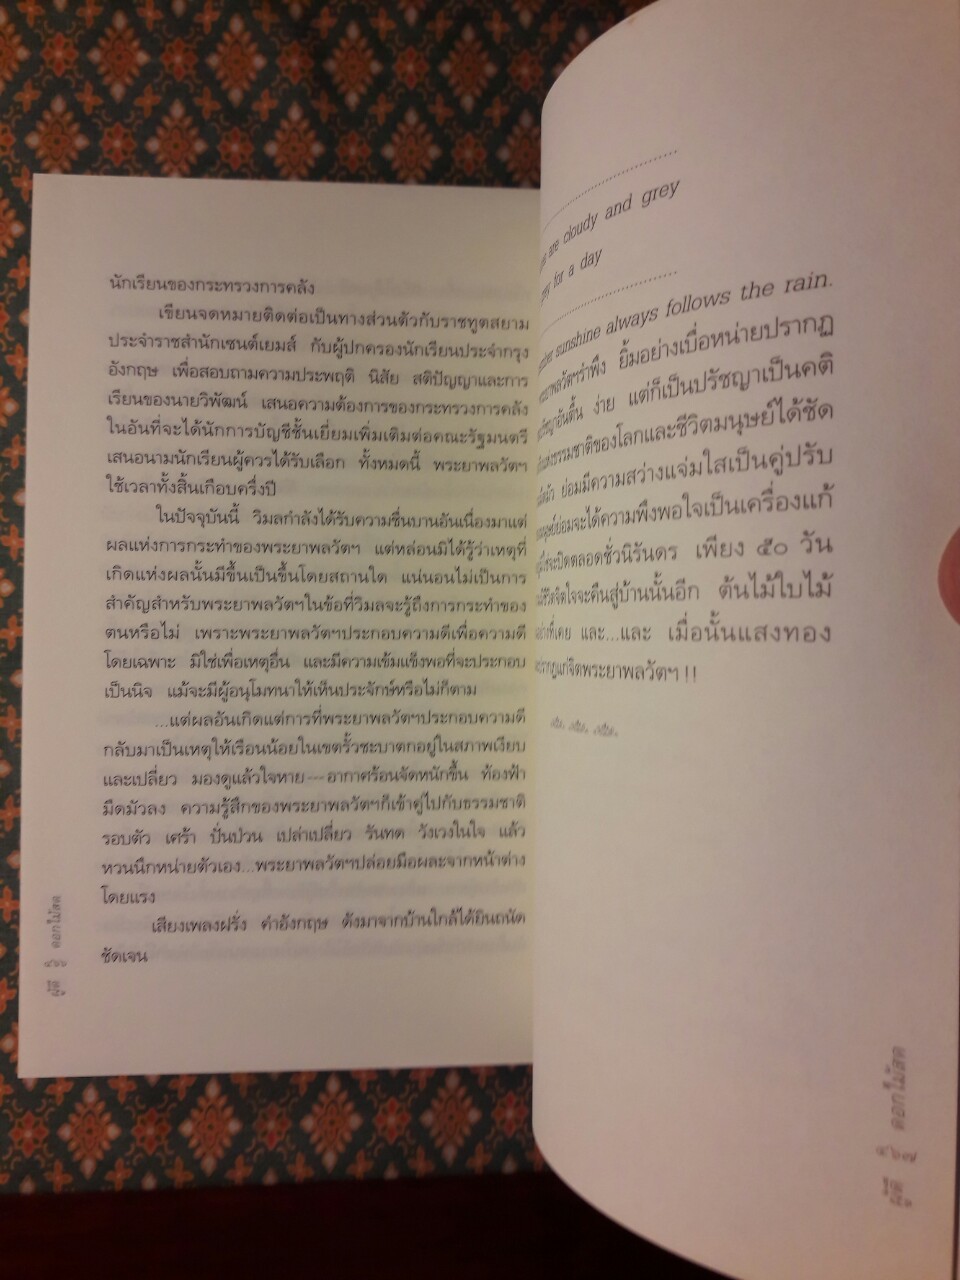 นักเรียนของกระทรวงการคลัง
เขียนจดหมายติดต่อเป็นทางส่วนตัวกับราชทูตสยาม
ประจำราชสำนักเซนต์เยมส์ กับผู้ปกครองนักเรียนประจำกรุง
อังกฤษ เพื่อสอบถามความประพฤติ นิสัย สติปัญญาและการ
เรียนของนายวิพัฒน์ เสนอความต้องการของกระทรวงการคลัง
ในอันที่จะได้นักการบัญชีชั้นเยี่ยมเพิ่มเติมต่อคณะรัฐมนตรี
เสนอนามนักเรียนผู้ควรได้รับเลือก ทั้งหมดนี้ พระยาพลวัตฯ
ใช้เวลาทั้งสิ้นเกือบครึ่งปี
ในปัจจุบันนี้ วิมลกำลังได้รับความชื่นบานอันเนื่องมาแต่
ผลแห่งการกระทำของพระยาพลวัตฯ แต่หล่อนมิได้รู้ว่าเหตุที่
เกิดแห่งผลนั้นมีขึ้นเป็นขึ้นโดยสถานใด แน่นอนไม่เป็นการ
สำคัญสำหรับพระยาพลวัตฯในข้อที่วิมลจะรู้ถึงการกระทำของ
ตนหรือไม่ เพราะพระยาพลวัตฯประกอบความดีเพื่อความดี
โดยเฉพาะ มิใช่เพื่อเหตุอื่น และมีความเข้มแข็งพอที่จะประกอบ
เป็นนิจ แม้จะมีผู้อนุโมทนาให้เห็นประจักษ์หรือไม่ก็ตาม
...แต่ผลอันเกิดแต่การที่พระยาพลวัตฯประกอบความดี
กลับมาเป็นเหตุให้เรือนน้อยในเขตรั้วชะบาตกอยู่ในสภาพเงียบ
และเปลี่ยว มองดูแล้วใจหาย---อากาศร้อนจัดหนักขึ้น ท้องฟ้า
มืดมัวลง ความรู้สึกของพระยาพลวัตฯก็เข้าคู่ไปกับธรรมชาติ
รอบตัว เศร้า ปั่นป่วน เปล่าเปลี่ยว รันทด วังเวงในใจ แล้ว
หวนนึกหน่ายตัวเอง...พระยาพลวัตฯปล่อยมือผละจากหน้าต่าง
โดยแรง
เสียงเพลงฝรั่ง คำอังกฤษ ดังมาจากบ้านใกล้ได้ยินถนัด
ชัดเจน
ผู้ดี ๕๖๖ ดอกไม้สด
are cloudy and grey
for a day
sunshine always follows the rain.
พระยาพลวัตฯรำพึง ยิ้มอย่างเบื่อหน่ายปรากฏ
อันตื้น ง่าย แต่ก็เป็นปรัชญาเป็นคติ
แห่งธรรมชาติของโลกและชีวิตมนุษย์ได้ชัด
ย่อมมีความสว่างแจ่มใสเป็นคู่ปรับ
มนุษย์ย่อมจะได้ความพึงพอใจเป็นเครื่องแก้
จะปิดตลอดชั่วนิรันดร เพียง ๕๐ วัน
ชีวิตจิตใจจะคืนสู่บ้านนั้นอีก ต้นไม้ใบไม้
ที่เคย และ...และ เมื่อนั้นแสงทอง
ปรากฏแก่จิตพระยาพลวัตฯ !!
ผู้ดี ๕๖๗ ดอกไม้สด